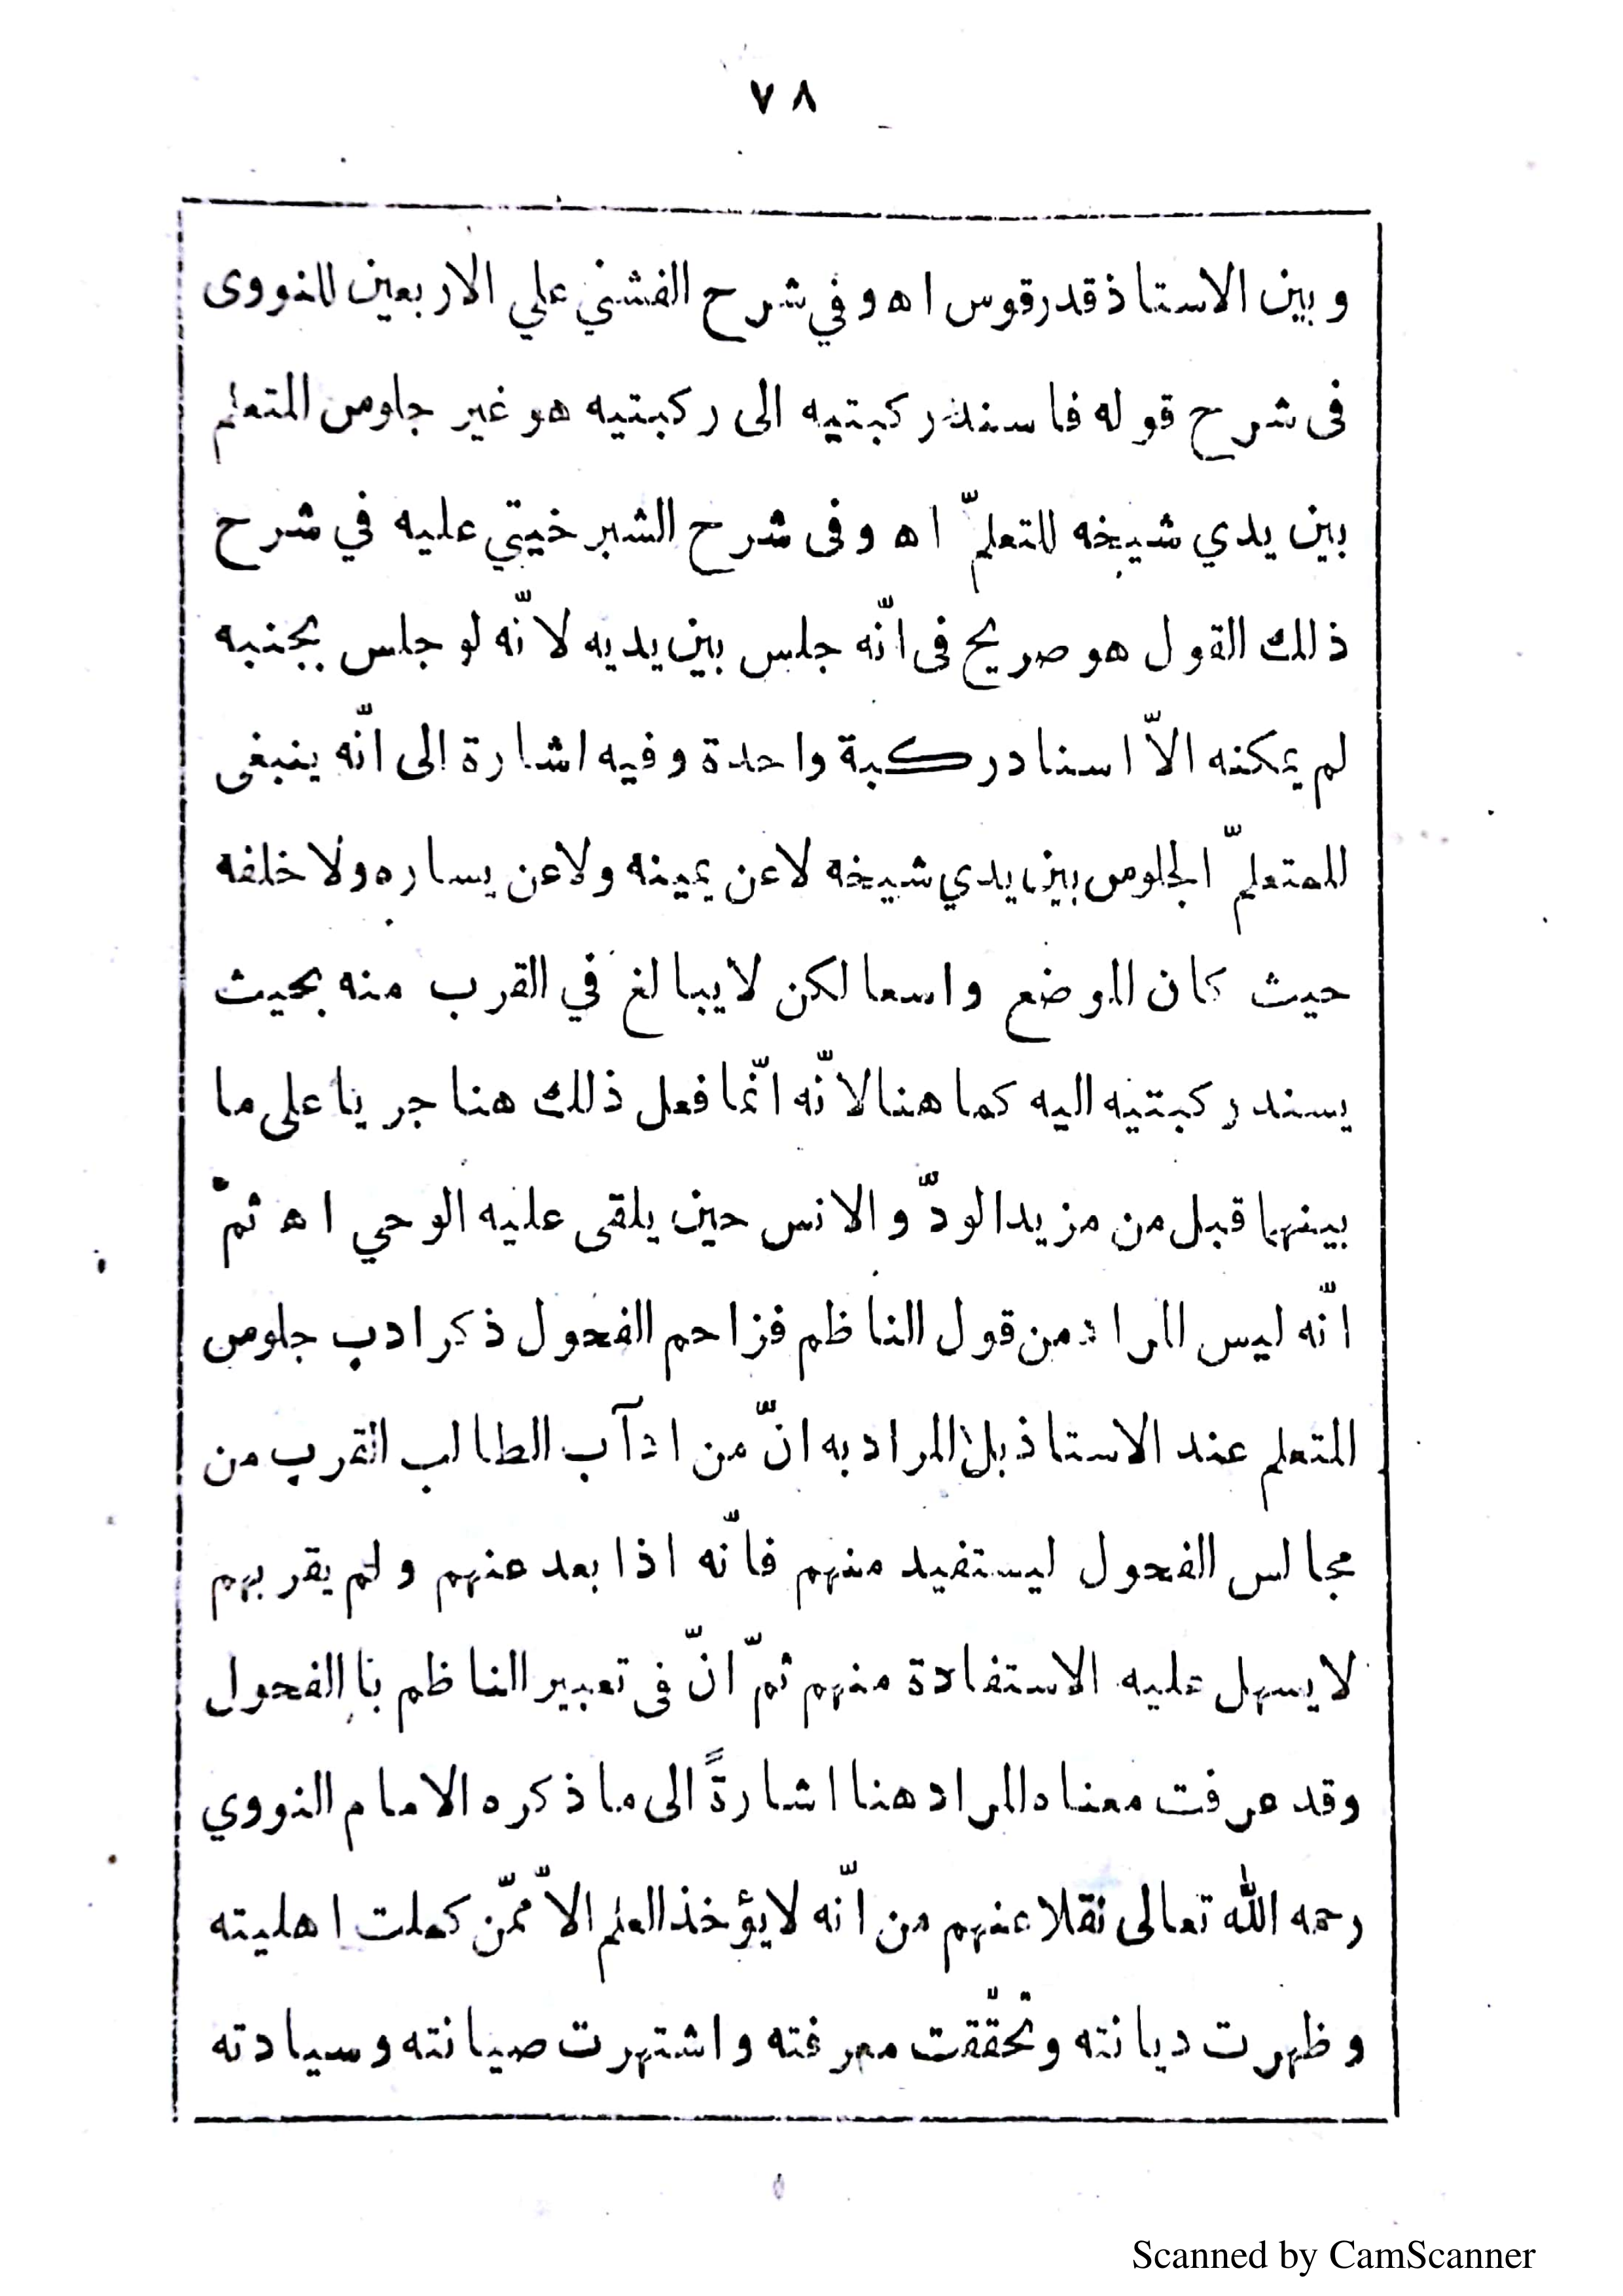 ٧٨
وبين الاستاذ قدر قوس اه وفي شرح الفشني علي الاربعين للنووى
فى شرح قوله فاسند ركبتيه الى ركبتيه هو غير جلوس المتعلم
بين يدي شيخه للتعلمّ اه وفى شرح الشبرخيتي عليه في شرح
ذلك القول هو صريح فى انّه جلس بين يديه لانّه لو جلس بجنبه
لم يمكنه الاّ اسناد ركبة واحدة وفيه اشارة الى انّه ينبغى
للمتعلمّ الجلوس بين يدي شيخه لا عن يمينه ولا عن يساره ولا خلفه
حيث كان الموضع واسعا لكن لا يبالغ في القرب منه بحيث
يسند ركبتيه اليه كما هنا لانّه انّما فعل ذلك هنا جريا على ما
بينهما قبل من مزيد الودّ والانس حين يلقى عليه الوحي اه ثمّ
انّه ليس المراد من قول الناظم فزاحم الفحول ذكر ادب جلوس
المتعلم عند الاستاذ بل المراد به انّ من ادآب الطالب القرب من
مجالس الفحول ليستفيد منهم فانّه اذا بعد عنهم ولم يقربهم
لا يسهل عليه الاستفادة منهم ثمّ انّ فى تعبير الناظم باالفحول
وقد عرفت معناه المراد هنا اشارةً الى ما ذكره الامام النووي
رحمه الله تعالى نقلا عنهم من انّه لا يؤخذ العلم الاّ ممّن كملت اهليته
وظهرت ديانته وتحقّقت معرفته واشتهرت صيانته وسيادته
Scanned by CamScanner